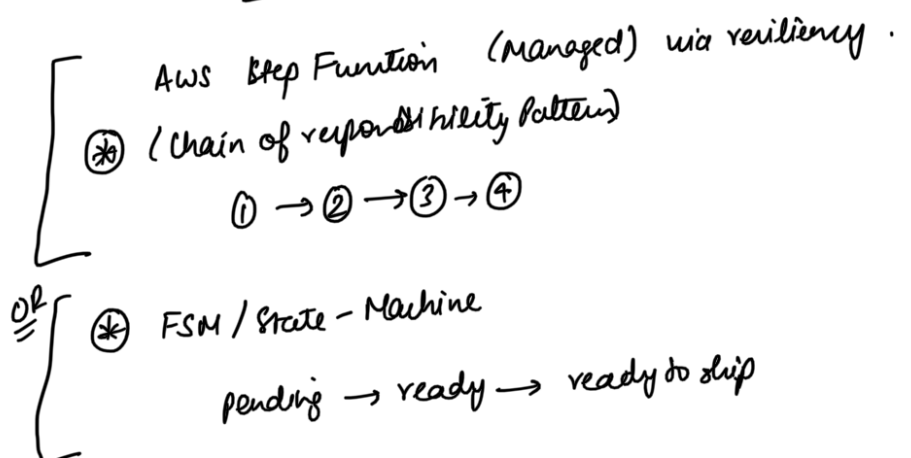 AWS Step Function (Managed) via resiliency.
⊛ (Chain of responsibility Pattern)
① → ② → ③ → ④
OR
⊛ FSM / State - Machine
pending → ready → ready to ship